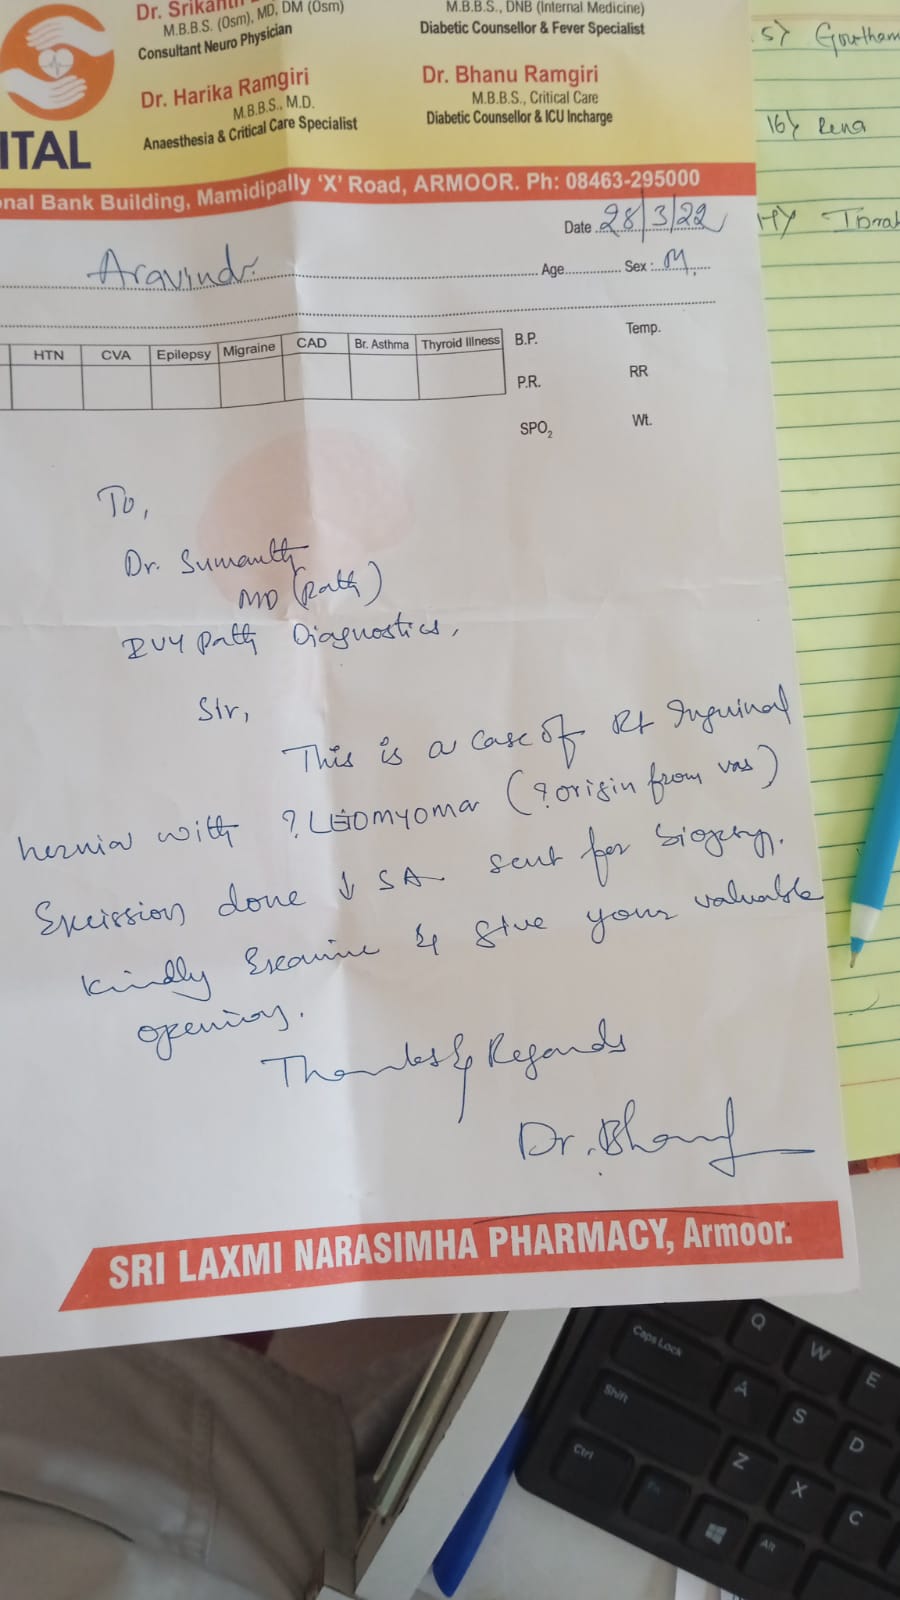 Dr. Srikanth
M.B.B.S. (Osm), MD, DM (Osm)
Consultant Neuro Physician
M.B.B.S., DNB (Internal Medicine)
Diabetic Counsellor & Fever Specialist
Dr. Harika Ramgiri
M.B.B.S., M.D.
Anaesthesia & Critical Care Specialist
Dr. Bhanu Ramgiri
M.B.B.S., Critical Care
Diabetic Counsellor & ICU Incharge
ITAL
onal Bank Building, Mamidipally 'X' Road, ARMOOR. Ph: 08463-295000
Date 28/3/22
Aravind. Age Sex: M
HTN CVA Epilepsy Migraine CAD Br. Asthma Thyroid Illness
B.P. Temp.
P.R. RR
SPO2 Wt.
To,
Dr. Sumanth
MD (Path)
Path Diagnostics,
Sir,
This is a case of Rt Inguinal
hernia with ? LEIOMYOMA (? origin from vas)
Excission done ↓ SA sent for biopsy.
Kindly Examine & give your valuable
openion.
Thanks & Regards
Dr. Bhanu
SRI LAXMI NARASIMHA PHARMACY, Armoor.
5) Gowtham
16)
Caps Lock Q W E
Shift A S D
Ctrl Z X C
Fn Alt